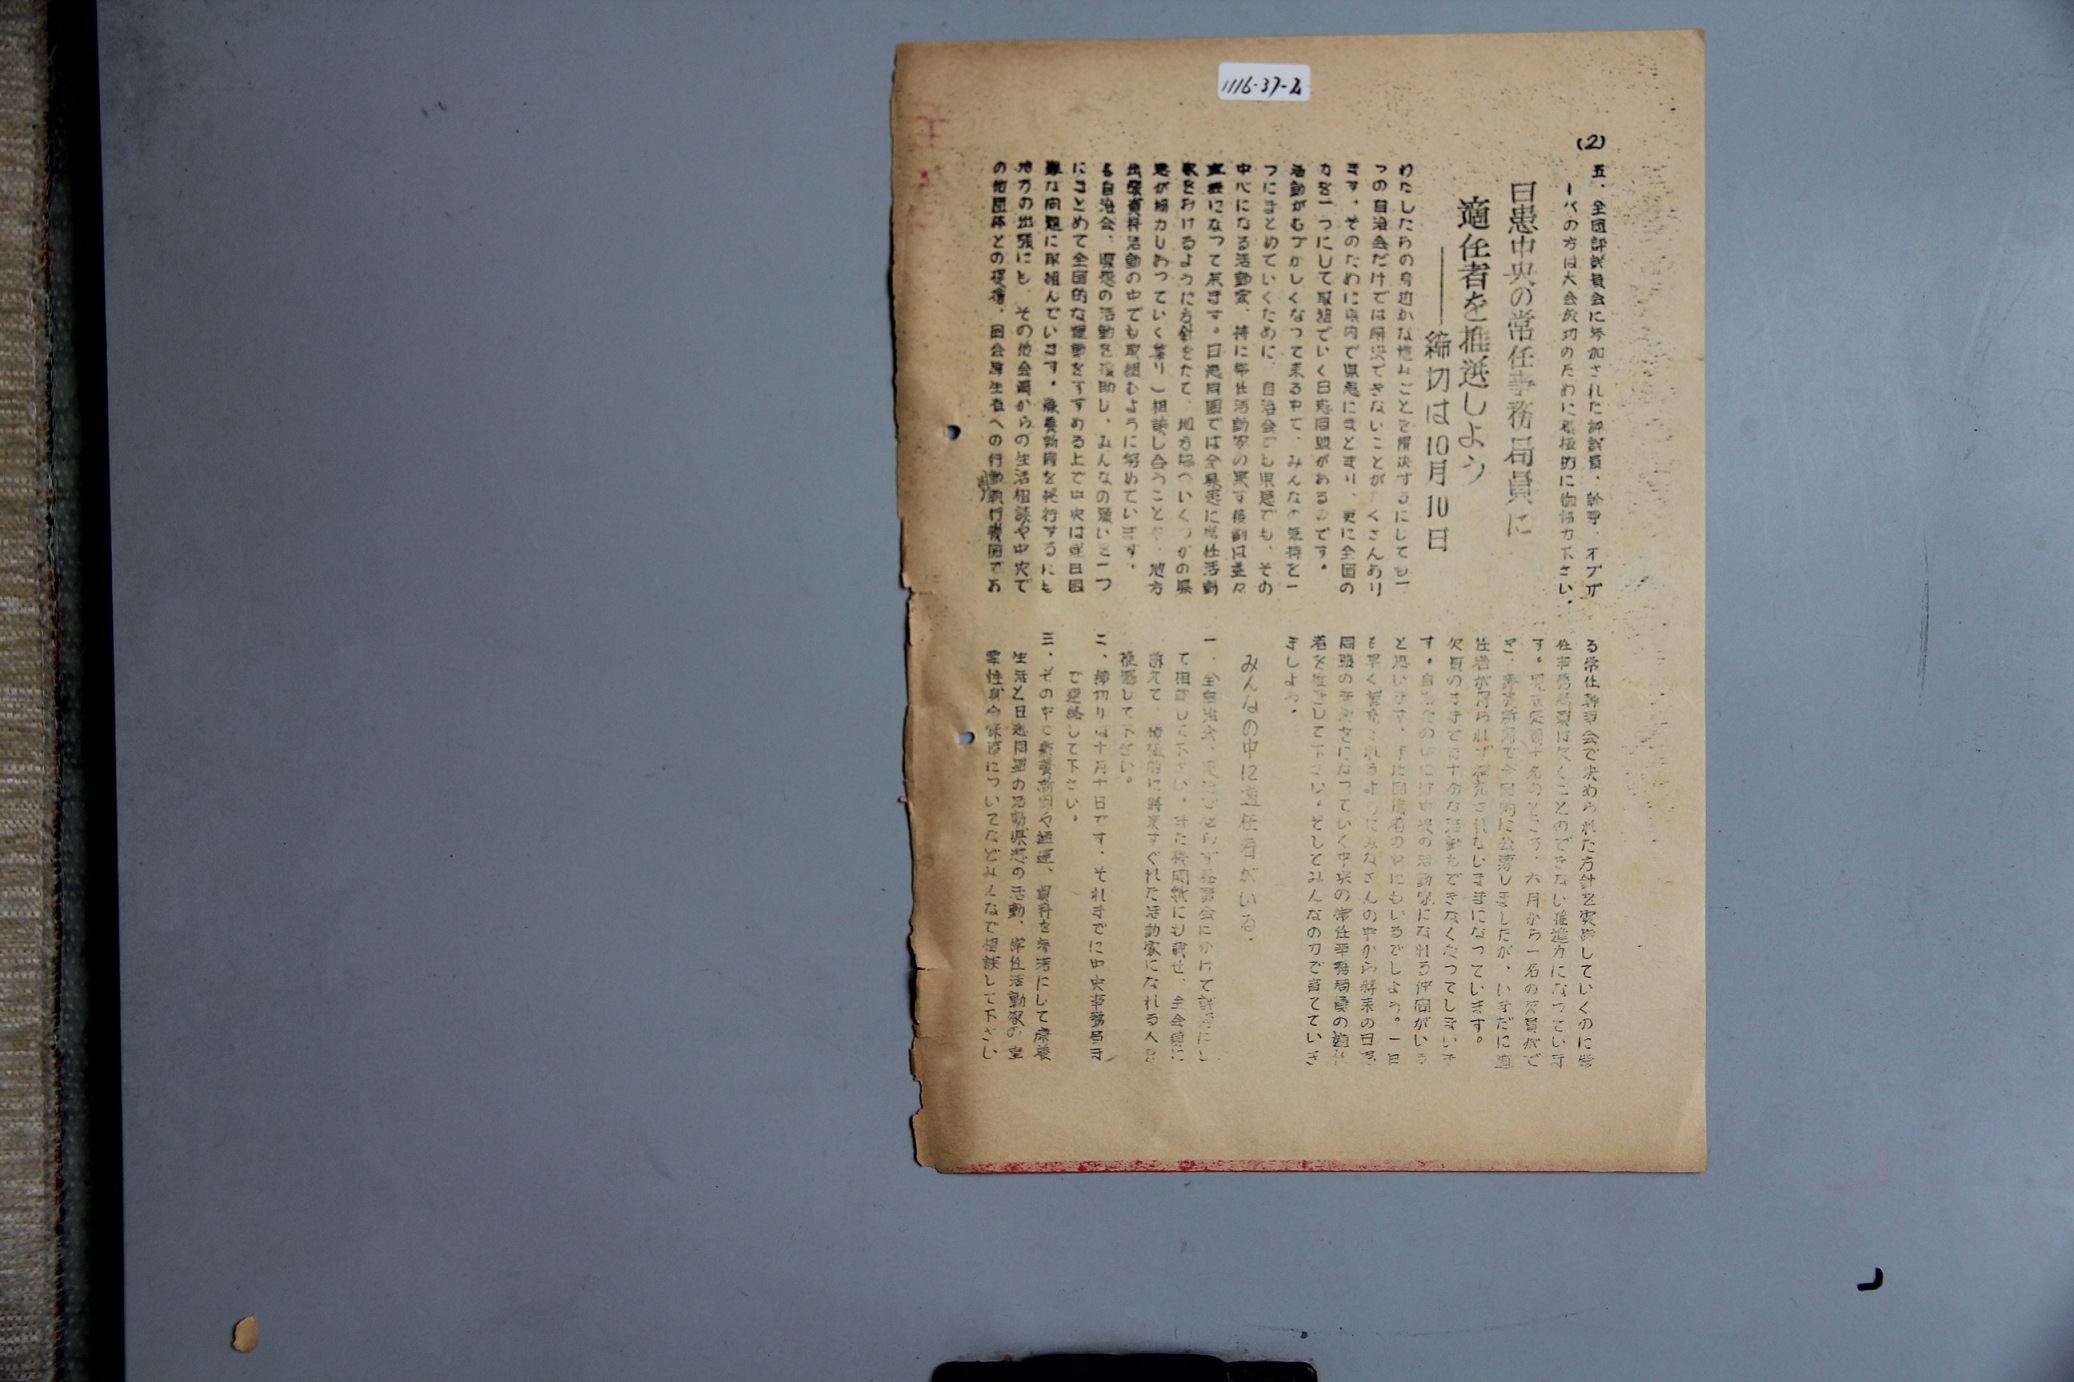 1116-37-2
(2)
五、全国評議員会に参加された評議員、幹事、オブザ
ーバの方は大会成功のために積極的に御協力下さい。
日患中央の常任事務局員に
適任者を推選しよう
——締切は10月10日
わたしたちの身近かな悩みごとを解決するにしても一
つの自治会だけでは解決できないことが くさんあり
ます。そのために県内で県患にまとまり、更に全国の
力を一つにして取組でいく日患同盟があるのです。
活動がむづかしくなって来る中で、みんなの気持を一
つにまとめていくために、自治会でも県患でも、その
中心になる活動家、特に常任活動家の果す役割は益々
重要になって来ます。日患同盟では全県患に常任活動
家をおけるように方針をたて、地方毎へいくつかの県
患が協力しあっていく 相談し合うことや、地方
出張資料活動の中でも取組むように努めています。
る自治会、県患の活動を援助し、みんなの願いを一つ
にまとめて全国的な運動をすすめる上で中央は連日困
難な問題に取組んでいます。療養新聞を発行するにも
地方の出張にも、その他会員からの生活相談や中央で
の他団体との提携、国会厚生省への行動執行機関であ
る常任幹事会で決められた方針を実践していくのに常
任事務局員は欠くことのできない推進力になっていま
す。現在定員十名のところ、六月から一名の欠員がで
き、療養新聞で全国的に公募しましたが、いまだに適
任者が得られず補充されないままになっています。
欠員のままでは十分な活動もできなくなってしまいま
す。自治会の中には中央の活動家になれる仲間がいる
と思います。また回復者の中にもいるでしよう。一日
も早く補充されるようにみなさんの中から将来の日患
同盟の をになっていく中央の常任事務局員の適任
者を推選して下さい。そしてみんなの力で育てていき
ましよう。
みんなの中に適任者がいる。
一、全自治会、県患で必らず役員会にかけて議題にし
て相談して下さい。また機関紙にも載せ、全会員に
訴えて、積極的に将来すぐれた活動家になれる人を
推選して下さい。
二、締切りは十月十日です。それまでに中央事務局ま
で連絡して下さい。
三、その中で療養新聞や 、資料を参活にして療養
生活と日患同盟の活動県患の活動、常任活動家の重
要性身分保障についてなどみんなで相談して下さい